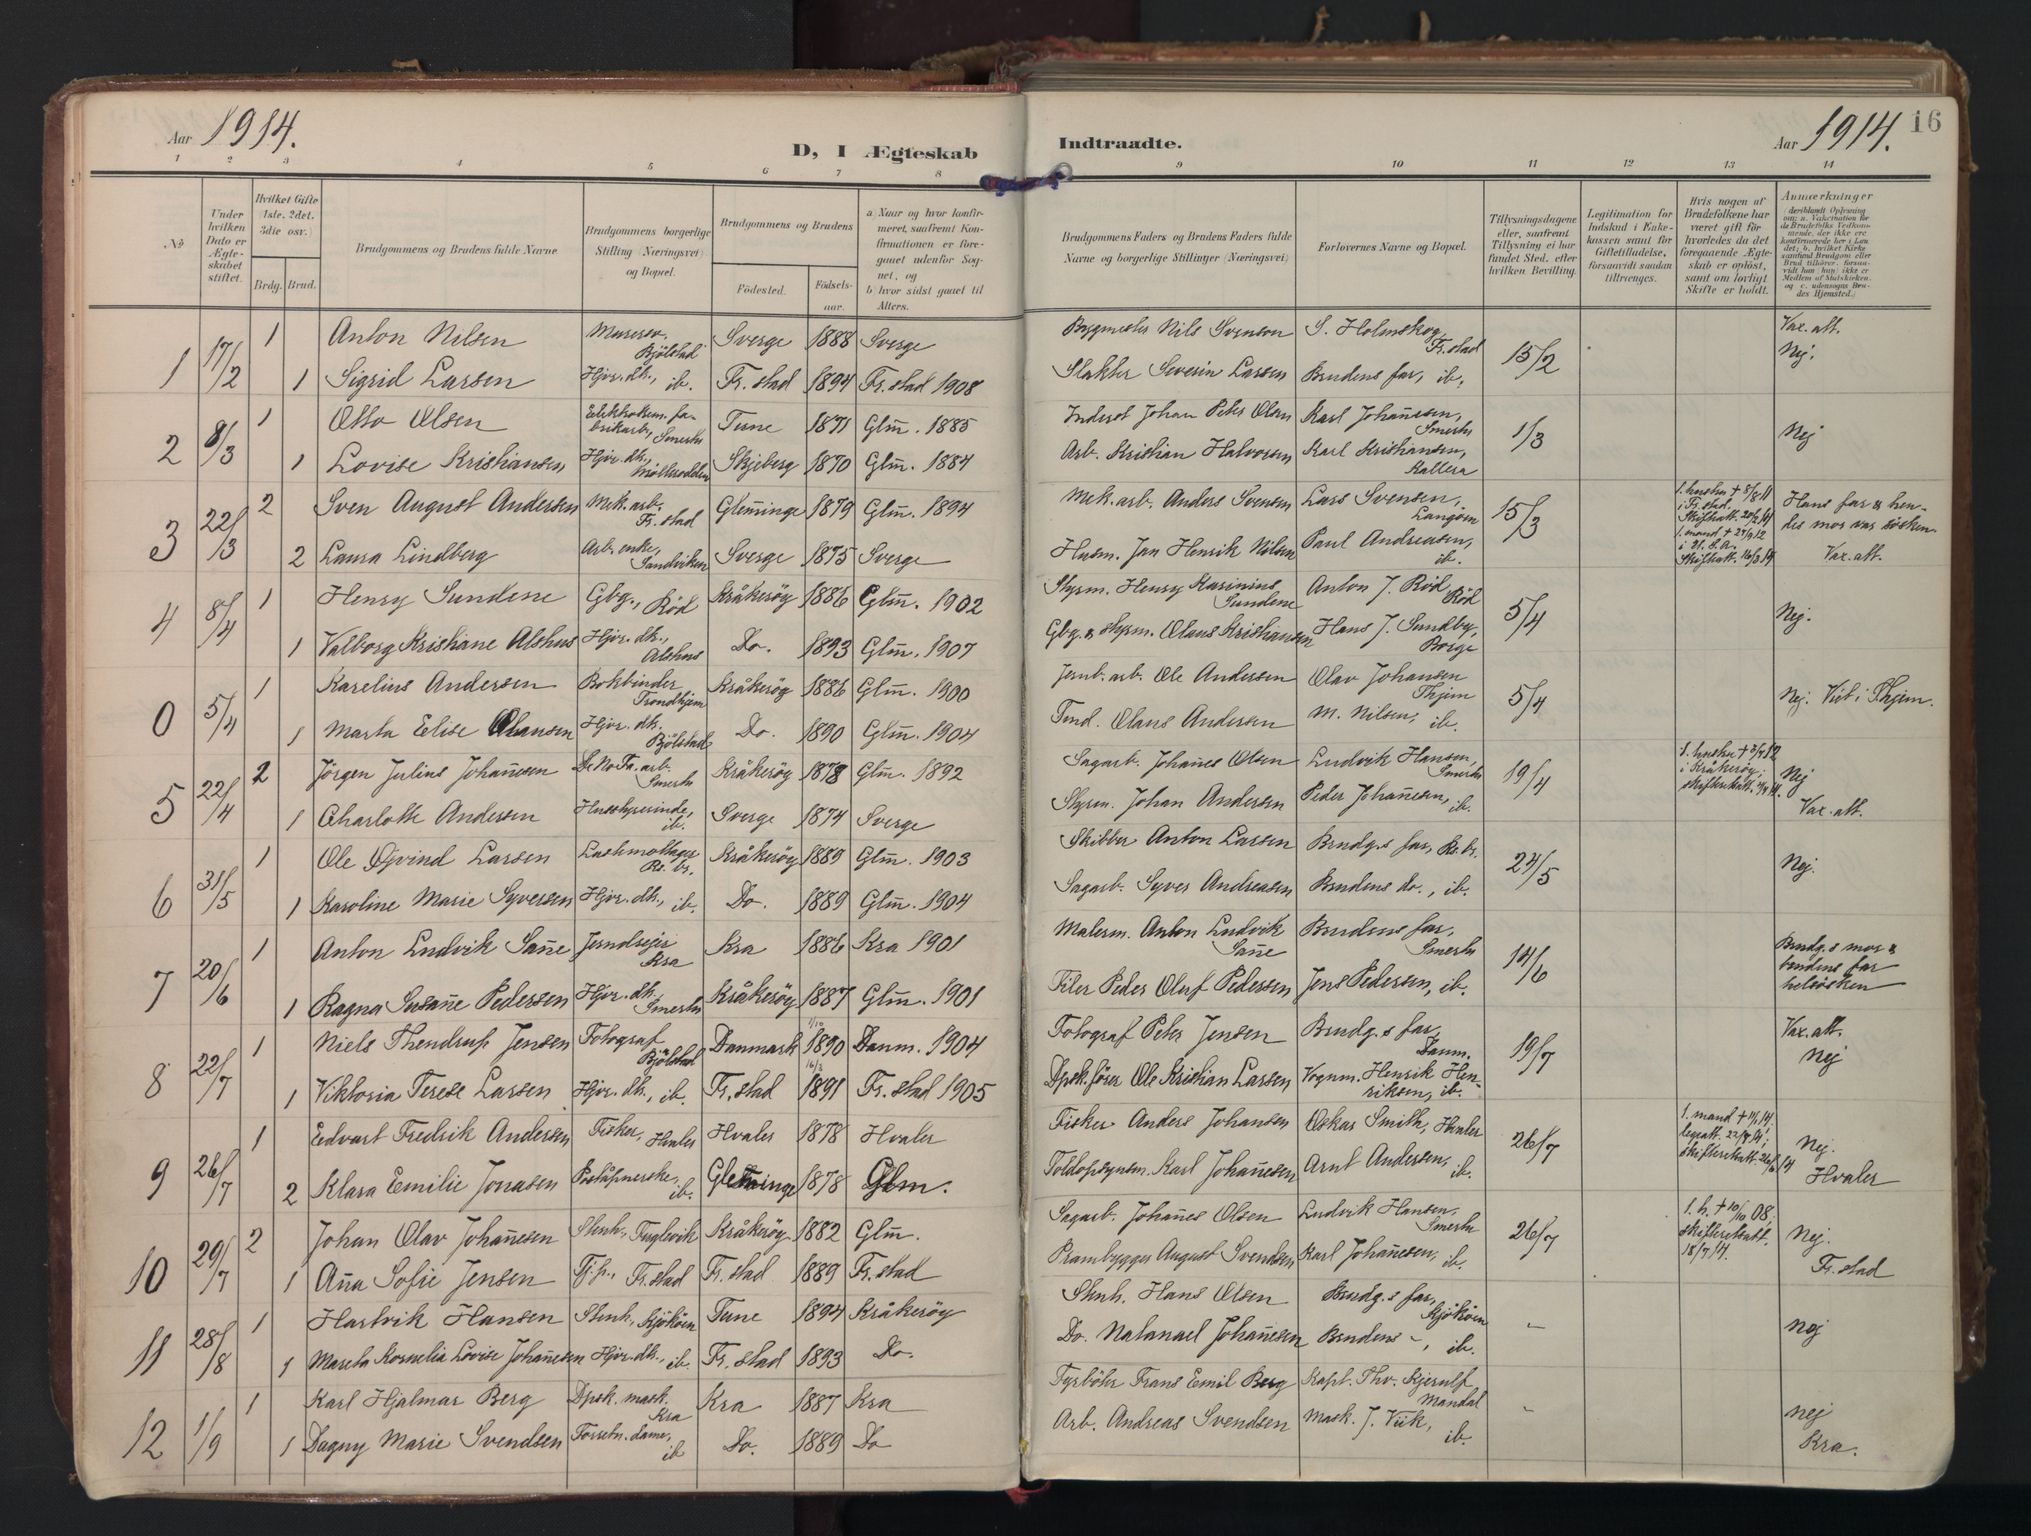 Aar 1914.
D, I Ægteskab
Indtraadte.
Aar 1914.
16
1 2 3 4 5 6 7 8 9 10 11 12 13 14
No
Under hvilken Dato er Ægteskabet stiftet.
Hvilket Gifte (1ste, 2det, 3die osv.)
Brdg. Brud.
Brudgommens og Brudens fulde Navne
Brudgommens borgerlige Stilling (Næringsvei) og Bopæl.
Brudgommens og Brudens
Födested. Födselsaar.
a) Naar og hvor konfirmeret, saafremt Konfirmationen er foregaaet udenfor Sognet, og
b) hvor sidst gaaet til Alters.
Brudgommens Faders og Brudens Faders fulde Navne og borgerlige Stillinger (Næringsvei)
Forlovernes Navne og Bopæl.
Tillysningsdagene eller, saafremt Tillysning ei har fundet Sted, efter hvilken Bevilling.
Legitimation for Indskud i Enkekassen samt for Giftetilladelse, forsaavidt saadan tiltrænges.
Hvis nogen af Brudefolkene har været gift før, hvorledes da det foregaaende Ægteskab er opløst, samt om lovligt Skifte er holdt.
Anmærkninger
1 17/2 1 Anton Nilsen Bjölstad Sverge 1888 Sverge Bygmester Nils Svenson S. Holmskog, Fr.stad 15/2 Vax. att. Nej.
1 Sigrid Larsen Hjv. dtr., ib. Fr.stad 1894 Fr.stad 1908 Slakter Severin Larsen Brudens far, ib.
2 8/3 1 Otto Olsen Elektrokem. fabrikarb., Smertu Tune 1871 Glm. 1885 Inderst Johan Peter Olsen Karl Johannesen, Smertu 1/3 Nej
1 Lovise Kristiansen Hjv. dtr., Möllerodden Skjeberg 1870 Glm. 1884 Arb. Kristian Halvorsen Karl Kristiansen, Kallera
3 22/3 2 Sven August Andersen Mek. arb. Fr.stad Glemminge 1879 Glm. 1894 Mek. arb. Anders Svensen Lars Svensen, Langöen 15/3 1. hustru + 5/8 11 i Fr.stad. Hans far & hendes mor var søsken.
2 Laura Lindberg Arb. enke, Sandviken Sverge 1875 Sverge Husm. Jan Henrik Nilsen Paul Andreasen, ib. 1. mand + 27/9 12 i U. S. A. Skifteatt. 16/3 14 Vax. att.
4 8/4 1 Henry Sundene Gbg., Röd Kråkeröy 1886 Glm. 1902 Styrm. Henry Karinius Sundene Anton J. Röd Röd 5/4 Nej.
1 Valborg Kristiane Alshus Hjv. dtr., Alshus Do. 1893 Glm. 1907 Gbg. & styrm. Olaus Kristiansen Hans J. Sundby, Borge
0 5/4 1 Karelius Andersen Bokbinder Trondhjem Kråkeröy 1886 Glm. 1900 Jernb. arb. Ole Andersen Olav Johansen Thjem 5/4 Nej. Viet i Thjem.
1 Marta Elise Olausen Hjv. dtr. Bjölstad Do. 1890 Glm. 1904 Tmd. Olaus Andersen M. Nilsen, ib.
5 22/4 2 Jörgen Julius Johannesen De No Fa. arb. Smertu Kråkeröy 1878 Glm. 1892 Sagarb. Johannes Olsen Ludvik Hansen, Smertu 19/4 1. hustru + 2/7 12 i Kråkeröy, Nej
1 Charlotte Andersen Husbestyrerinde, ib. Sverge 1874 Sverge Styrm. Johan Andersen Peder Johannesen, ib. Vax. att.
6 31/5 1 Ole Öjvind Larsen Lastmottager Kråkeröy 1889 Glm. 1903 Skibber Anton Larsen Brudg.s far, 24/5 Nej.
1 Karoline Marie Syversen Hjv. dtr., ib. Do. 1889 Glm. 1904 Sagarb. Syver Andreasen Brudens do., ib.
7 20/6 1 Anton Ludvik Sanne Kra Kra 1886 Kra 1901 Malerm. Anton Ludvik Sanne Brudens far, Smertu 14/6 Brudg.s mor & brudens far helsösken
1 Ragna Susanne Pedersen Hjv. dtr., Smertu Kråkeröy 1887 Glm. 1901 Filer Peder Oluf Pedersen Jens Pedersen, ib.
8 22/7 1 Niels Thendrup Jensen Fotograf Bjölstad Danmark 1890 Danm. 1904 Fotograf Peter Jensen Brudg.s far, Danm. 19/7 Vax. att. Nej
1 Viktoria Terese Larsen Hjv. dtr., ib. Fr.stad 1891 Fr.stad 1905 Dpsk. förer Ole Kristian Larsen Vognm. Henrik Henriksen, ib.
9 26/7 1 Edvart Fredrik Andersen Fisker, Hvaler Hvaler 1878 Hvaler Fisker Anders Johansen Oskar Smith, Hvaler 26/7 Nej.
2 Klara Emilie Jonasen Poståpnerske, ib. Gleminge 1878 Glm. Toldopsynsm. Karl Johannesen Arnt Andersen, ib. Hvaler
10 29/7 2 Johan Olav Johannesen Stenh., Fuglevik Kråkeröy 1882 Glm. Sagarb. Johannes Olsen Ludvik Hansen, Smertu 26/7 1. h. + 10/10 08. skifteretsatt. 18/7 14. Nej.
1 Anna Sofie Jensen Tj.p., Fr.stad Fr.stad 1889 Fr.stad Prambygger August Svendsen Karl Johannesen, ib. Fr.stad
11 28/8 1 Hartvik Hansen Stenh., Kjököen Tune 1894 Kråkeröy Stenh. Hans Olsen Brudg.s far, Kjököen - Nej
1 Mareta Kornelia Lovise Johannesen Hjv. dtr., ib. Fr.stad 1893 Do. Do. Natanael Johannesen Brudens -, ib.
12 1/9 1 Karl Hjalmar Berg Dpsk. mask. Kra Kra 1887 Kra Fyrböter Frans Emil Berg Kapt. Thv. Kjerulf, Mandal - Nej
1 Dagny Marie Svendsen Forretn. dame, ib Do. 1889 Do Arb. Andreas Svendsen Mask. J. Viik, ib. Kra.